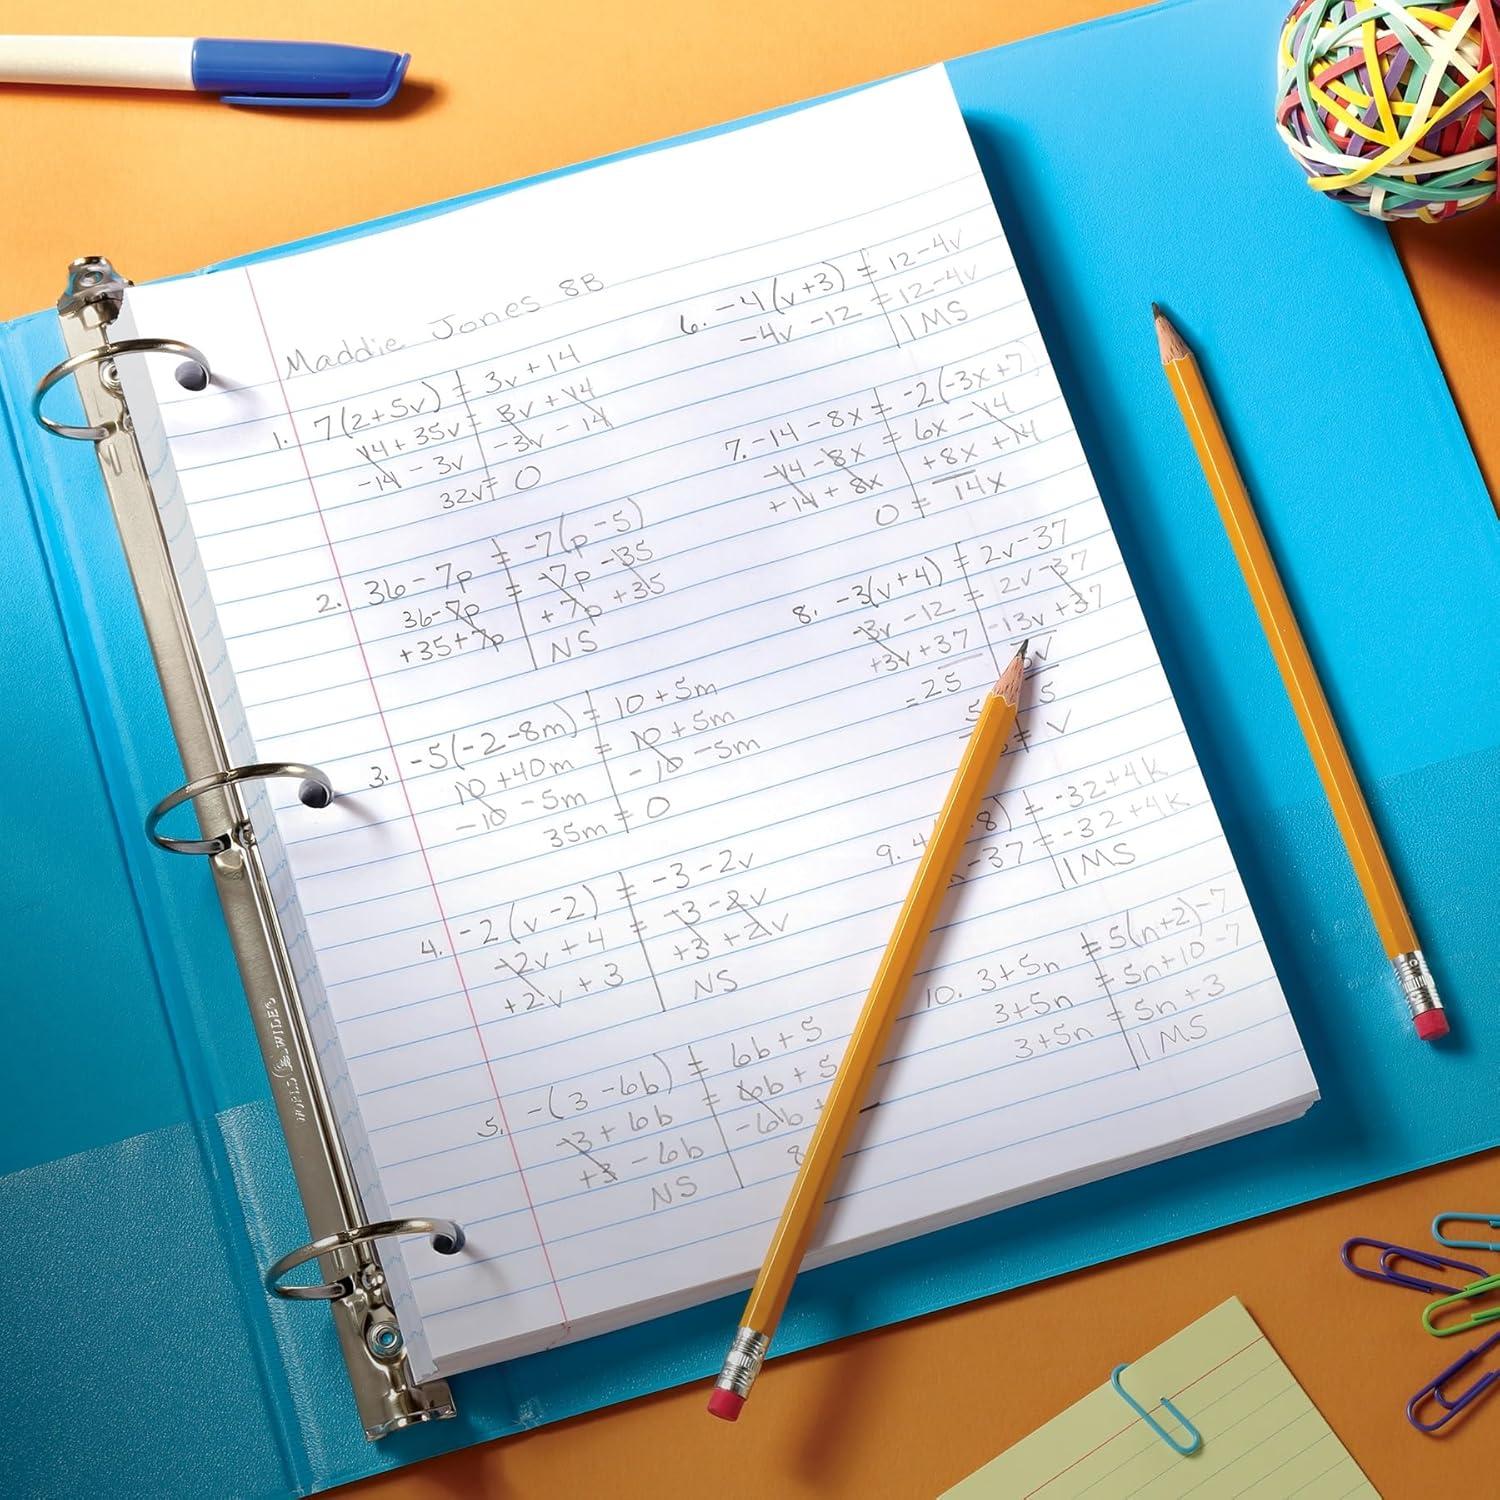 Maddie Jones 8B
1. 7(2+5v) = 3v+14
14+35v = 3v+14
-14-3v -3v-14
32v = 0
2. 36-7p = -7(p-5)
36-7p = -7p-35
+35+7p +7p+35
NS
3. -5(-2-8m) = 10+5m
10+40m = 10+5m
-10-5m -10-5m
35m = 0
4. -2(v-2) = -3-2v
-2v+4 = -3-2v
+2v+3 +3+2v
NS
5. -(3-6b) = 6b+5
-3+6b = 6b+5
+3-6b -6b+
NS 8
6. -4(v+3) = 12-4v
-4v-12 = 12-4v
IMS
7. -14-8x = -2(-3x+7)
-14-8x = 6x-14
+14+8x +8x+14
0 = 14x
8. -3(v+4) = 2v-37
-3v-12 = 2v-37
+3v+37 -13v+37
=25
5 5
= v
9. 4 8) = -32+4k
-37 = -32+4k
IMS
10. 3+5n = 5(n+2)-7
3+5n = 5n+10-7
3+5n = 5n+3
IMS